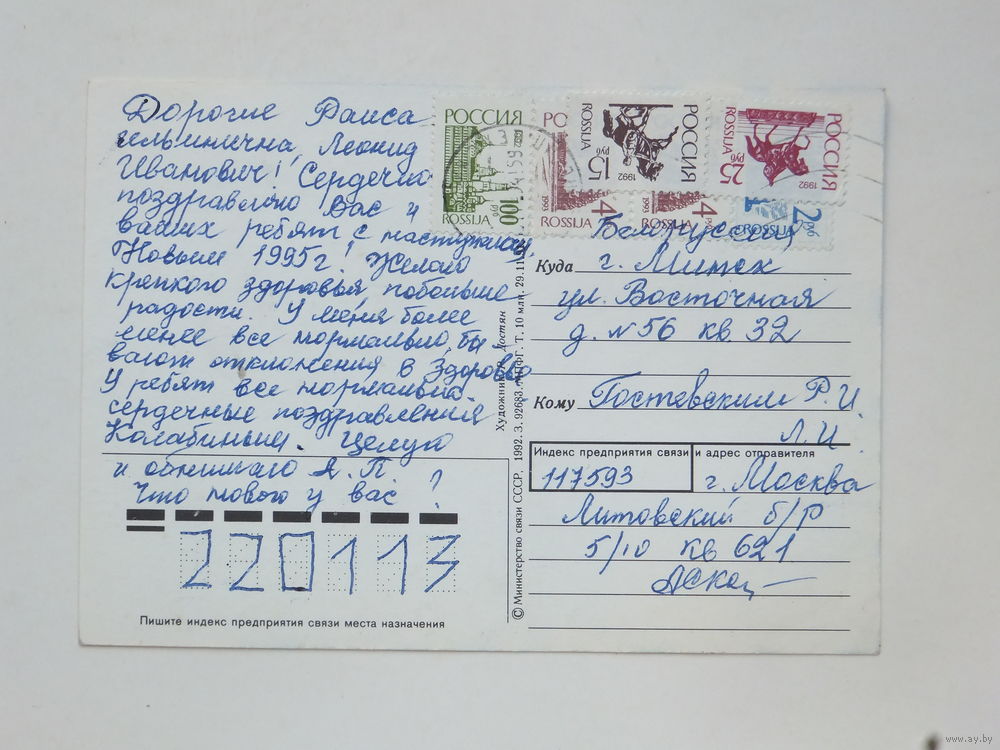 Дорогие Раиса
ильинична, Леонид
Иванович! Сердечно
поздравляю Вас и
ваших ребят с наступающ
Новым 1995г! Желаю
крепкого здоровья побольше
радости. У меня более
менее все нормально, бы
вают отклонения в здоровье
У ребят все нормально.
сердечные поздравления
Калабиным. Целую
и обнимаю А. П.
Что нового у вас?
220113
Пишите индекс предприятия связи места назначения
РОССИЯ
100 руб
ROSSIJA
РОС
4
1993
ROSSIJA
РОССИЯ
15 руб
1992
ROSSIJA
4
1993
ROSSIJA
РОССИЯ
25 руб
1992
ROSSIJA
2 руб
ROSSIJA
Белоруссия
Куда г. Минск
ул. Восточная
д. N 56 кв. 32
Кому Гостевским Р. И.
Л. И.
Индекс предприятия связи и адрес отправителя
117593 г. Москва
Литовский б/р
5/10 кв 621
© Министерство связи СССР, 1992. З. 92683. ППФГ. Т. 10 млн. 29.11
Художник Р. Достян
www.ay.by